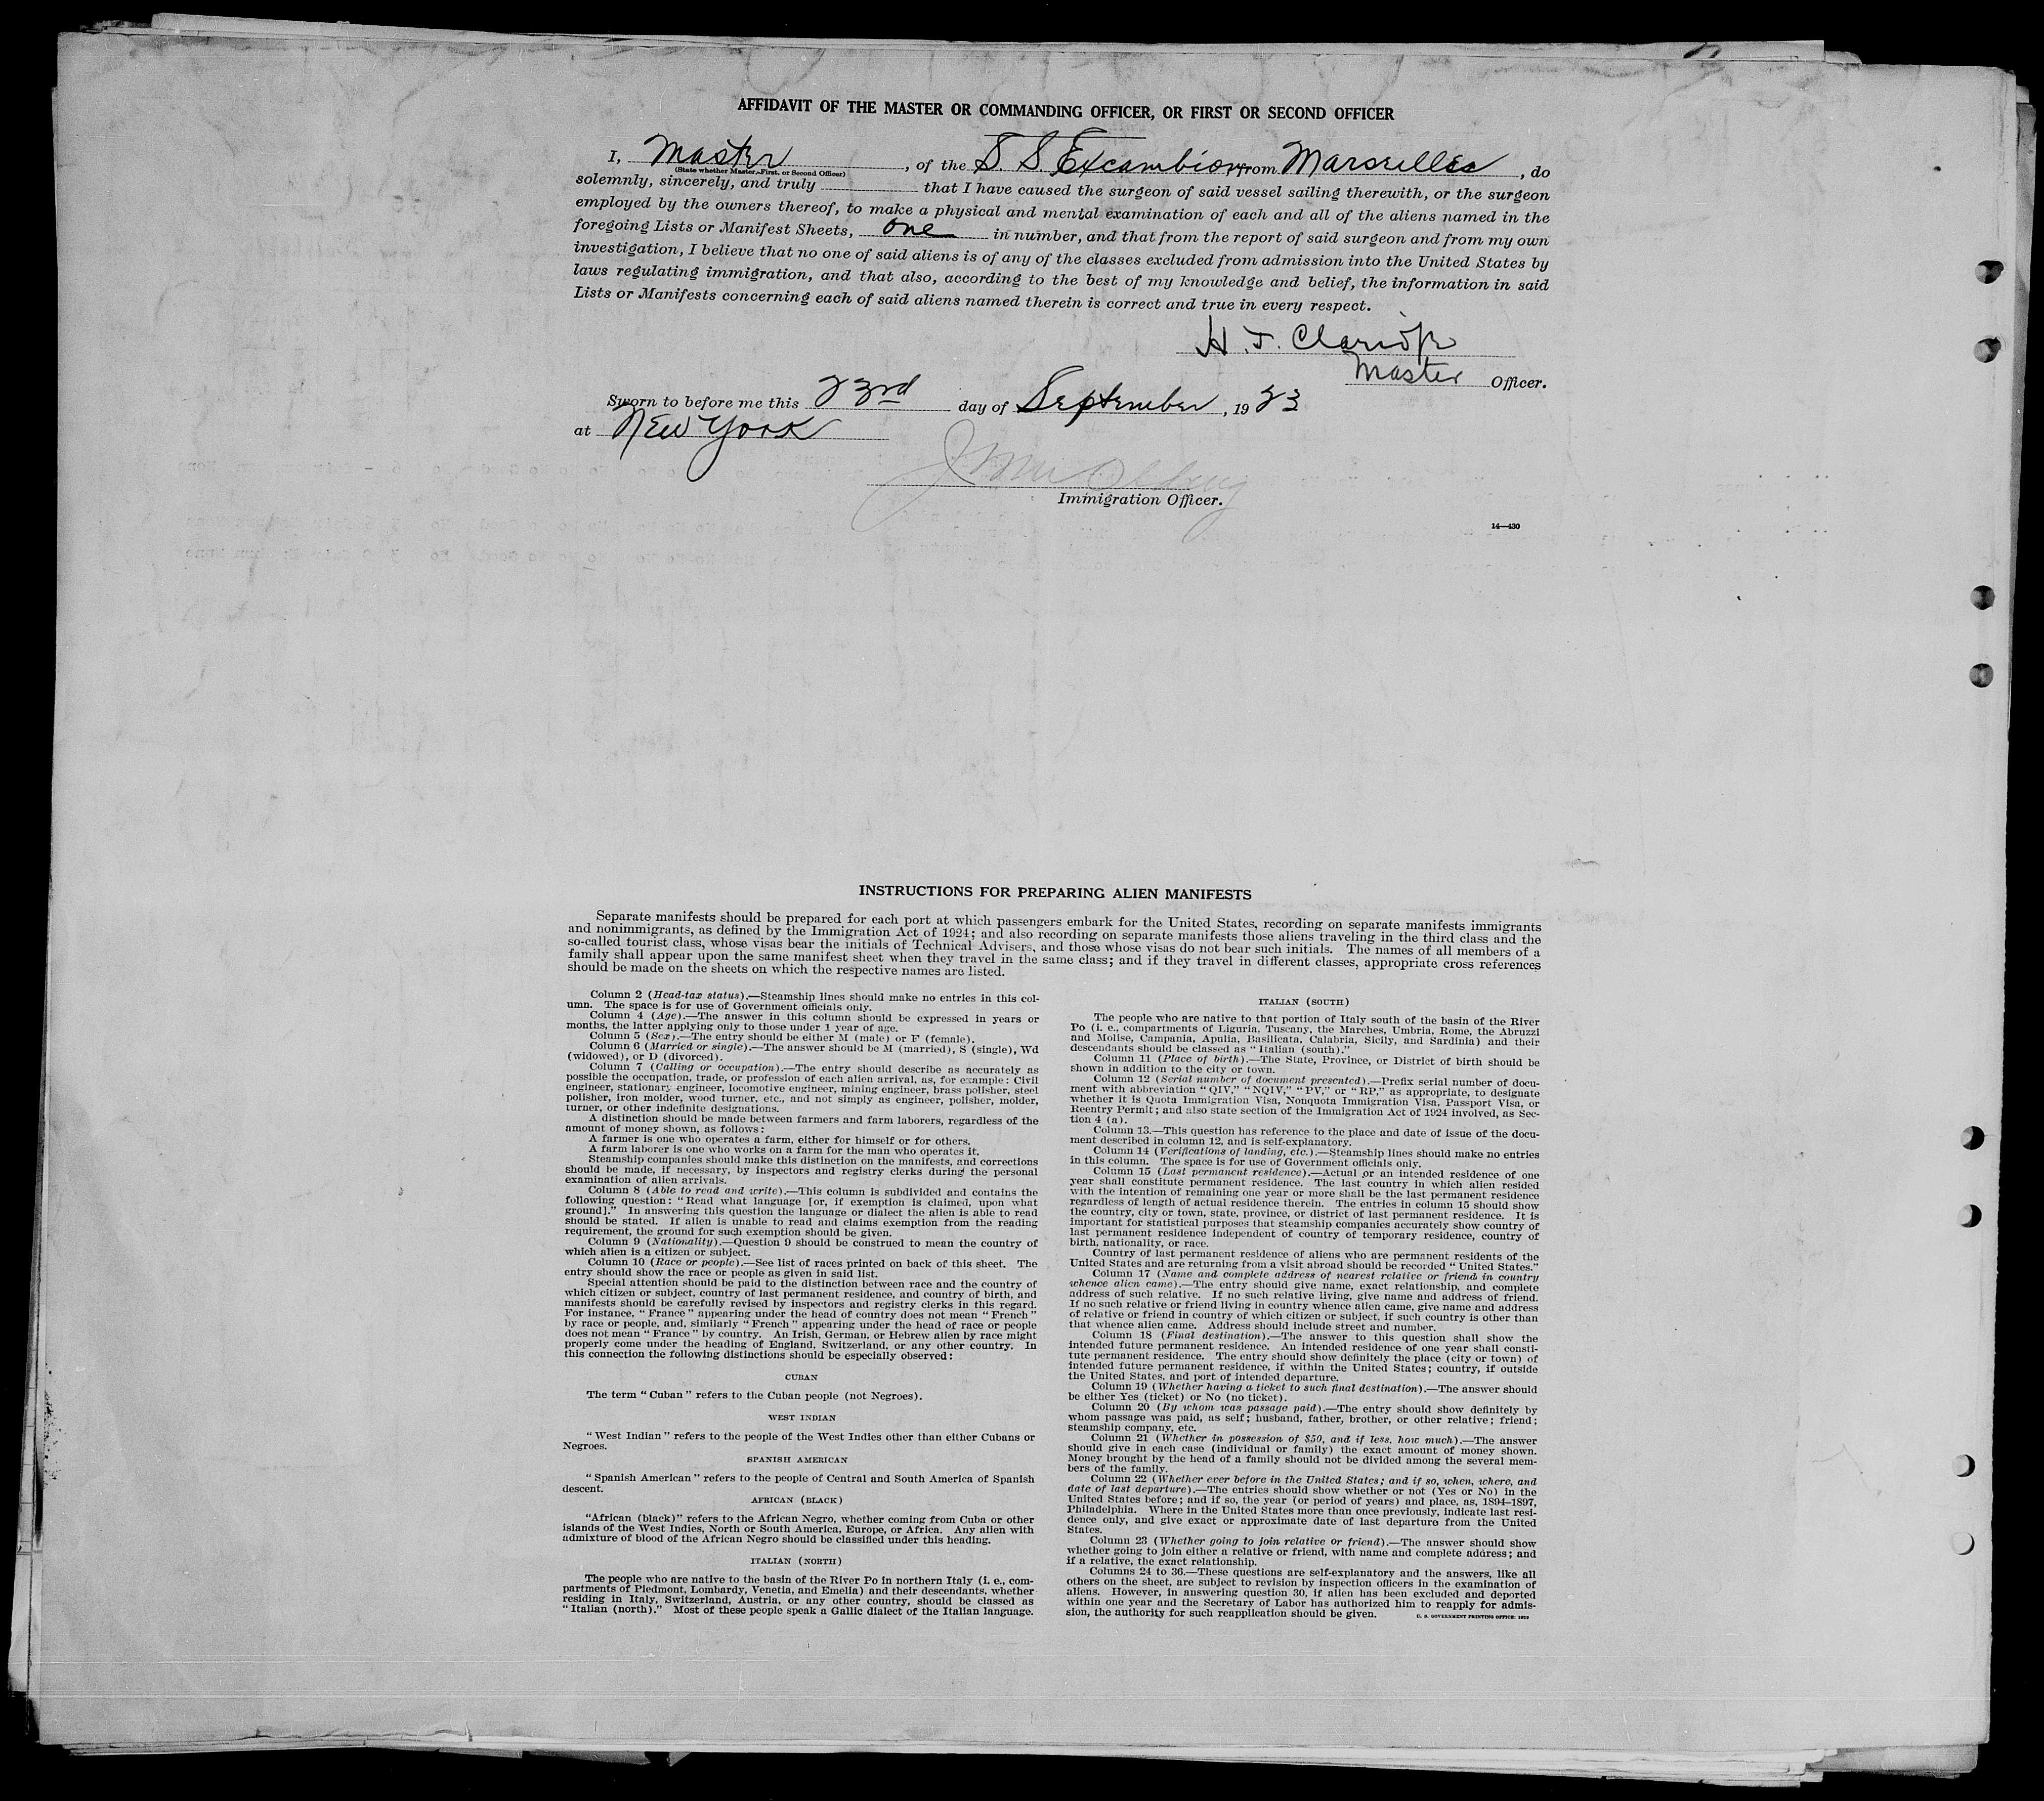 AFFIDAVIT OF THE MASTER OR COMMANDING OFFICER, OR FIRST OR SECOND OFFICER
I, Master, of the S. S. Excambion from Marseilles, do
(State whether Master, First, or Second Officer)
solemnly, sincerely, and truly that I have caused the surgeon of said vessel sailing therewith, or the surgeon
employed by the owners thereof, to make a physical and mental examination of each and all of the aliens named in the
foregoing Lists or Manifest Sheets, one in number, and that from the report of said surgeon and from my own
investigation, I believe that no one of said aliens is of any of the classes excluded from admission into the United States by
laws regulating immigration, and that also, according to the best of my knowledge and belief, the information in said
Lists or Manifests concerning each of said aliens named therein is correct and true in every respect.
H. F.
Master Officer.
Sworn to before me this 23rd day of September, 19
at New York
Immigration Officer.
14—430
INSTRUCTIONS FOR PREPARING ALIEN MANIFESTS
Separate manifests should be prepared for each port at which passengers embark for the United States, recording on separate manifests immigrants
and nonimmigrants, as defined by the Immigration Act of 1924; and also recording on separate manifests those aliens traveling in the third class and the
so-called tourist class, whose visas bear the initials of Technical Advisers, and those whose visas do not bear such initials. The names of all members of a
family shall appear upon the same manifest sheet when they travel in the same class; and if they travel in different classes, appropriate cross references
should be made on the sheets on which the respective names are listed.
Column 2 (Head-tax status).—Steamship lines should make no entries in this col-
umn. The space is for use of Government officials only.
Column 4 (Age).—The answer in this column should be expressed in years or
months, the latter applying only to those under 1 year of age.
Column 5 (Sex).—The entry should be either M (male) or F (female).
Column 6 (Married or single).—The answer should be M (married), S (single), Wd
(widowed), or D (divorced).
Column 7 (Calling or occupation).—The entry should describe as accurately as
possible the occupation, trade, or profession of each alien arrival, as, for example: Civil
engineer, stationary engineer, locomotive engineer, mining engineer, brass polisher, steel
polisher, iron molder, wood turner, etc., and not simply as engineer, polisher, molder,
turner, or other indefinite designations.
A distinction should be made between farmers and farm laborers, regardless of the
amount of money shown, as follows:
A farmer is one who operates a farm, either for himself or for others.
A farm laborer is one who works on a farm for the man who operates it.
Steamship companies should make this distinction on the manifests, and corrections
should be made, if necessary, by inspectors and registry clerks during the personal
examination of alien arrivals.
Column 8 (Able to read and write).—This column is subdivided and contains the
following question: "Read what language [or, if exemption is claimed, upon what
ground]." In answering this question the language or dialect the alien is able to read
should be stated. If alien is unable to read and claims exemption from the reading
requirement, the ground for such exemption should be given.
Column 9 (Nationality).—Question 9 should be construed to mean the country of
which alien is a citizen or subject.
Column 10 (Race or people).—See list of races printed on back of this sheet. The
entry should show the race or people as given in said list.
Special attention should be paid to the distinction between race and the country of
which citizen or subject, country of last permanent residence, and country of birth, and
manifests should be carefully revised by inspectors and registry clerks in this regard.
For instance, "France" appearing under the head of country does not mean "French"
by race or people, and, similarly "French" appearing under the head of race or people
does not mean "France" by country. An Irish, German, or Hebrew alien by race might
properly come under the heading of England, Switzerland, or any other country. In
this connection the following distinctions should be especially observed:
CUBAN
The term "Cuban" refers to the Cuban people (not Negroes).
WEST INDIAN
"West Indian" refers to the people of the West Indies other than either Cubans or
Negroes.
SPANISH AMERICAN
"Spanish American" refers to the people of Central and South America of Spanish
descent.
AFRICAN (BLACK)
"African (black)" refers to the African Negro, whether coming from Cuba or other
islands of the West Indies, North or South America, Europe, or Africa. Any alien with
admixture of blood of the African Negro should be classified under this heading.
ITALIAN (NORTH)
The people who are native to the basin of the River Po in northern Italy (i. e., com-
partments of Piedmont, Lombardy, Venetia, and Emelia) and their descendants, whether
residing in Italy, Switzerland, Austria, or any other country, should be classed as
"Italian (north)." Most of these people speak a Gallic dialect of the Italian language.
ITALIAN (SOUTH)
The people who are native to that portion of Italy south of the basin of the River
Po (i. e., compartments of Liguria, Tuscany, the Marches, Umbria, Rome, the Abruzzi
and Molise, Campania, Apulia, Basilicata, Calabria, Sicily, and Sardinia) and their
descendants should be classed as "Italian (south)."
Column 11 (Place of birth).—The State, Province, or District of birth should be
shown in addition to the city or town.
Column 12 (Serial number of document presented).—Prefix serial number of docu-
ment with abbreviation "QIV," "NQIV," "PV," or "RP," as appropriate, to designate
whether it is Quota Immigration Visa, Nonquota Immigration Visa, Passport Visa, or
Reentry Permit; and also state section of the Immigration Act of 1924 involved, as Sec-
tion 4 (a).
Column 13.—This question has reference to the place and date of issue of the docu-
ment described in column 12, and is self-explanatory.
Column 14 (Verifications of landing, etc.).—Steamship lines should make no entries
in this column. The space is for use of Government officials only.
Column 15 (Last permanent residence).—Actual or an intended residence of one
year shall constitute permanent residence. The last country in which alien resided
with the intention of remaining one year or more shall be the last permanent residence
regardless of length of actual residence therein. The entries in column 15 should show
the country, city or town, state, province, or district of last permanent residence. It is
important for statistical purposes that steamship companies accurately show country of
last permanent residence independent of country of temporary residence, country of
birth, nationality, or race.
Country of last permanent residence of aliens who are permanent residents of the
United States and are returning from a visit abroad should be recorded "United States."
Column 17 (Name and complete address of nearest relative or friend in country
whence alien came).—The entry should give name, exact relationship, and complete
address of such relative. If no such relative living, give name and address of friend.
If no such relative or friend living in country whence alien came, give name and address
of relative or friend in country of which citizen or subject, if such country is other than
that whence alien came. Address should include street and number.
Column 18 (Final destination).—The answer to this question shall show the
intended future permanent residence. An intended residence of one year shall consti-
tute permanent residence. The entry should show definitely the place (city or town) of
intended future permanent residence, if within the United States; country, if outside
the United States, and port of intended departure.
Column 19 (Whether having a ticket to such final destination).—The answer should
be either Yes (ticket) or No (no ticket).
Column 20 (By whom was passage paid).—The entry should show definitely by
whom passage was paid, as self; husband, father, brother, or other relative; friend;
steamship company, etc.
Column 21 (Whether in possession of $50, and if less, how much).—The answer
should give in each case (individual or family) the exact amount of money shown.
Money brought by the head of a family should not be divided among the several mem-
bers of the family.
Column 22 (Whether ever before in the United States; and if so, when, where, and
date of last departure).—The entries should show whether or not (Yes or No) in the
United States before; and if so, the year (or period of years) and place, as, 1894–1897,
Philadelphia. Where in the United States more than once previously, indicate last resi-
dence only, and give exact or approximate date of last departure from the United
States.
Column 23 (Whether going to join relative or friend).—The answer should show
whether going to join either a relative or friend, with name and complete address; and
if a relative, the exact relationship.
Columns 24 to 36.—These questions are self-explanatory and the answers, like all
others on the sheet, are subject to revision by inspection officers in the examination of
aliens. However, in answering question 30, if alien has been excluded and deported
within one year and the Secretary of Labor has authorized him to reapply for admis-
sion, the authority for such reapplication should be given.
U. S. GOVERNMENT PRINTING OFFICE: 1929